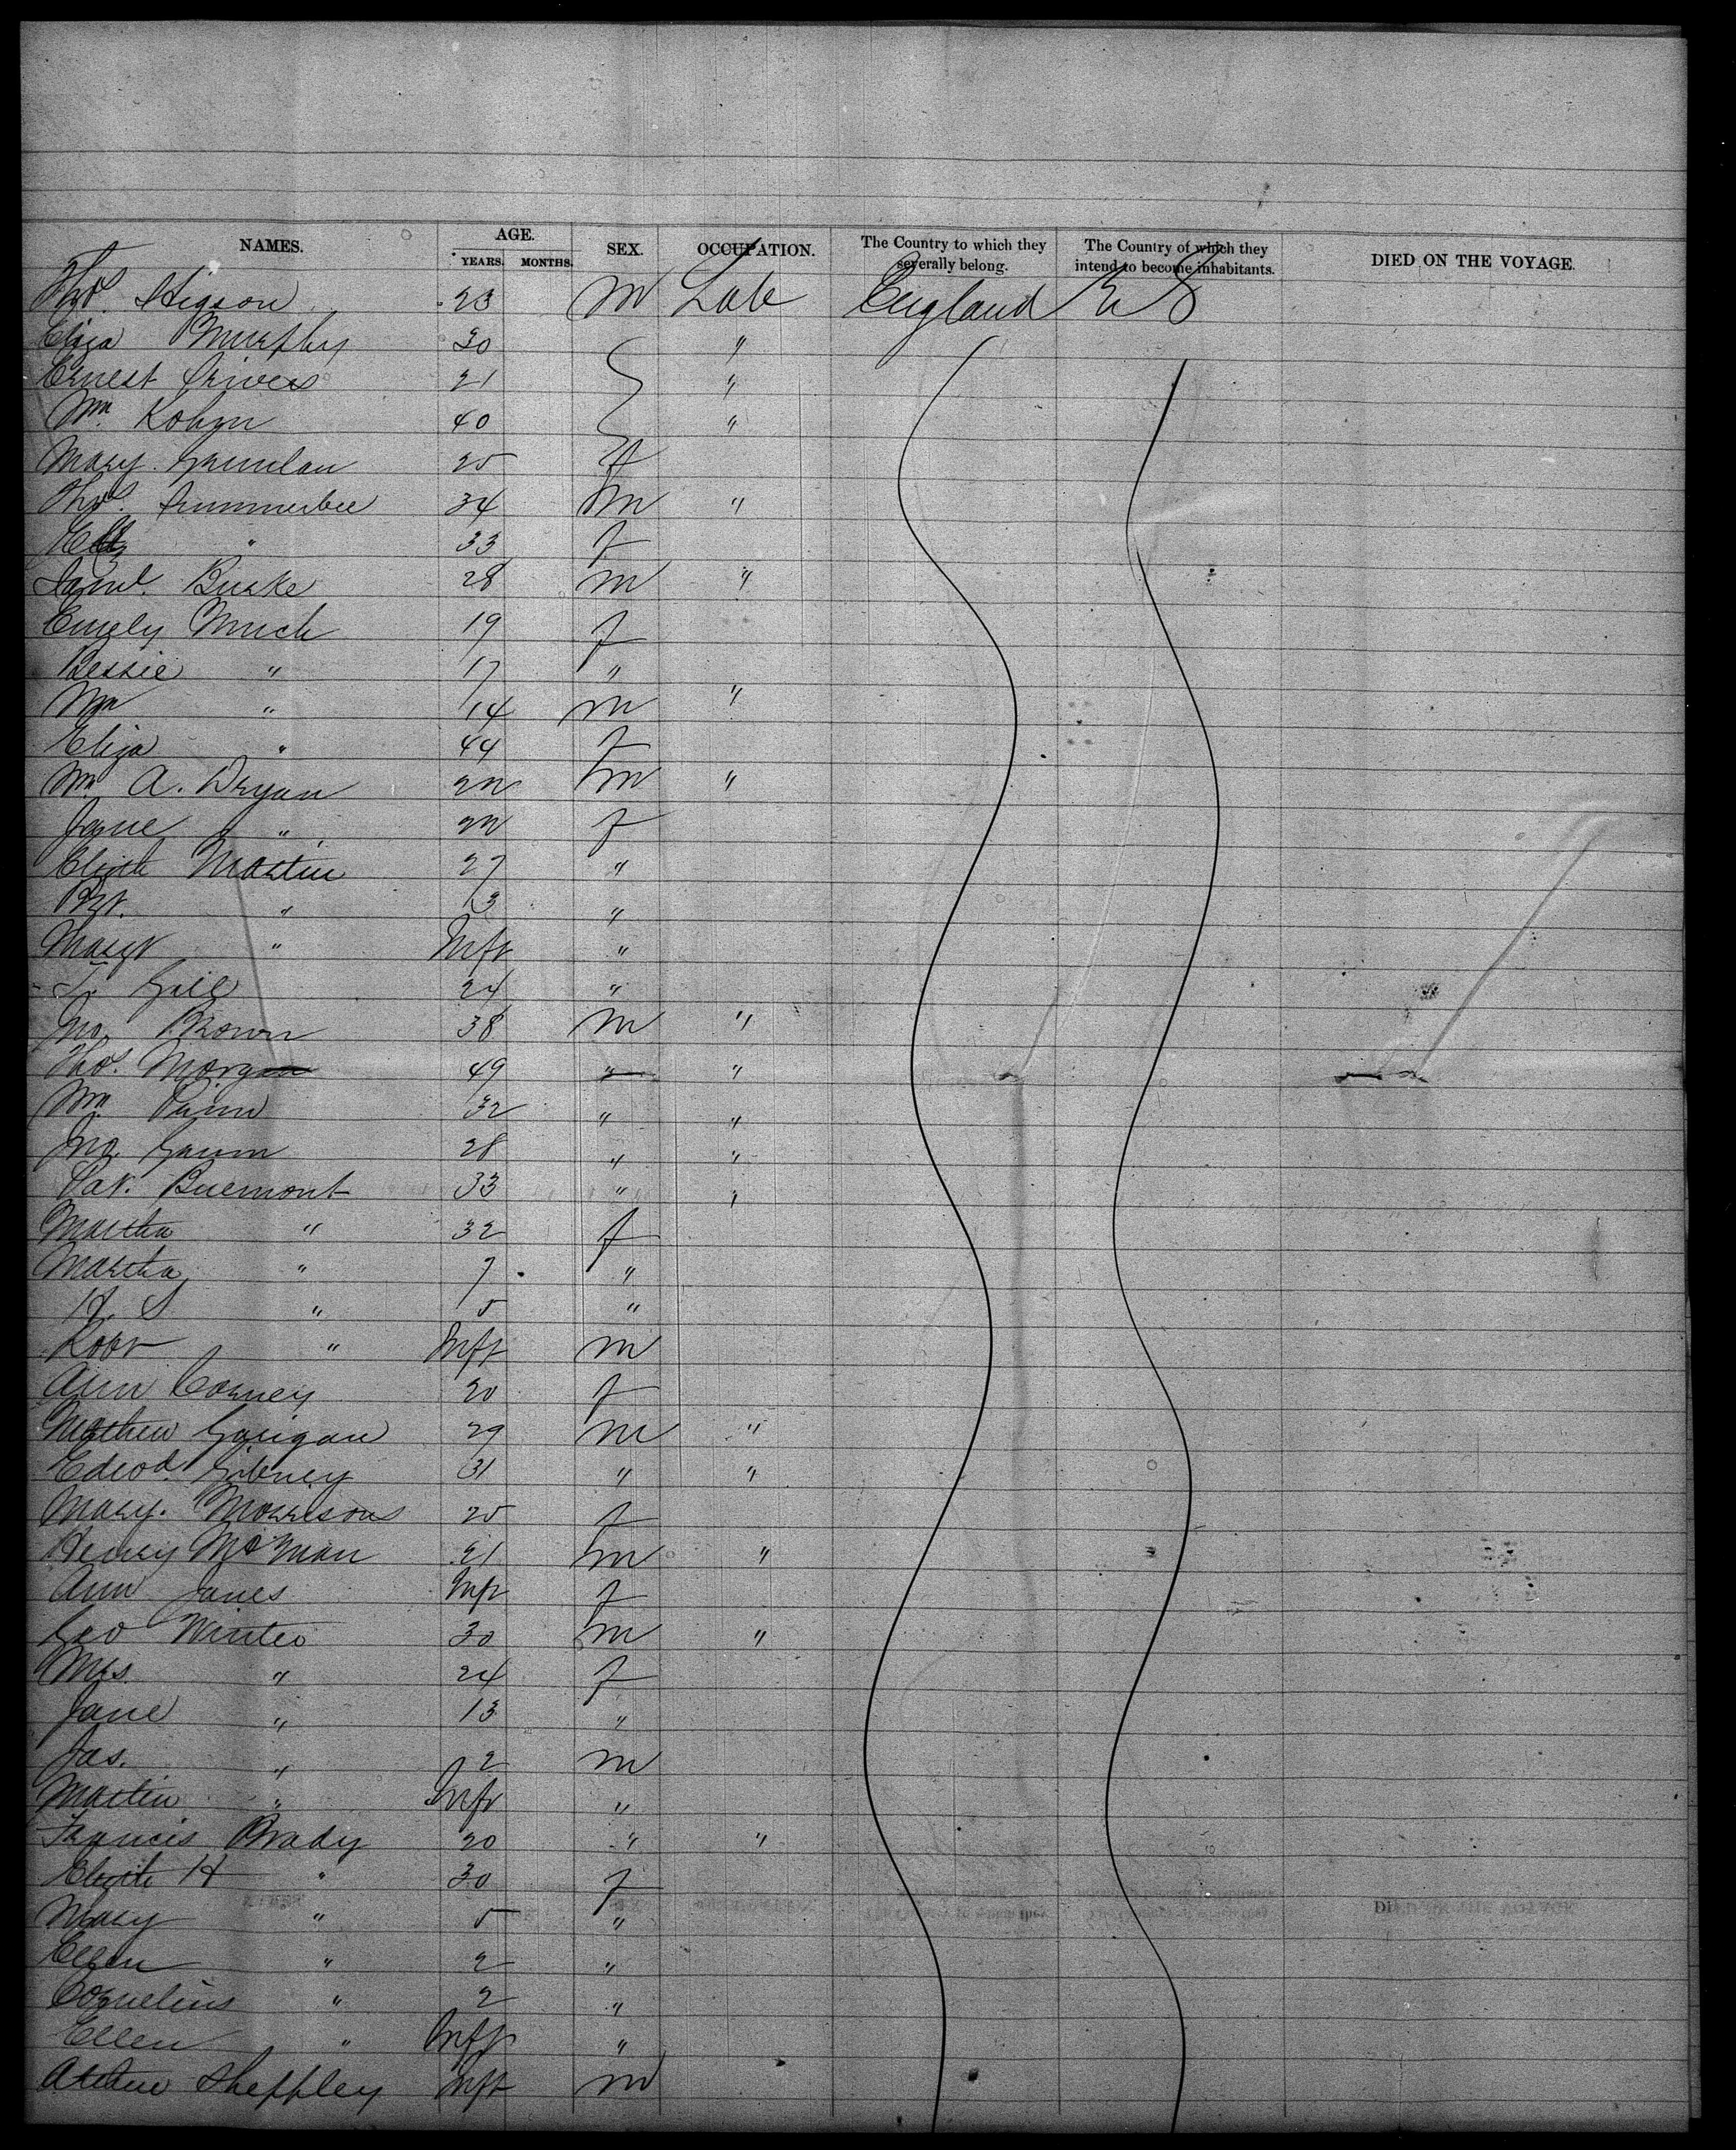 NAMES. AGE. SEX. OCCUPATION. The Country to which they severally belong. The Country of which they intend to become inhabitants. DIED ON THE VOYAGE.
YEARS. MONTHS.
Thos. Higson 23 m Lab England U S
Eliza Murphy 30 "
Ernest 21 "
Wm. 40 "
Mary 25 f
Thos. Summerbee 34 m "
" 33 f
Saml. Burke 28 m "
Emily Much 19 f
Bessie " 17 "
Wm " 14 m "
Eliza " 44 f
Wm A. Dryan 22 m "
Jane " 22 f
Elizth Martin 27 "
" 13 "
Margt " Inft "
Gill 24 "
Jno. Brown 38 m "
Thos. Morgan 49 " "
Wm 32 " "
Jno. 28 " "
Pat. 33 " "
Martha " 32 f
Martha " 7 "
H. S " 5 "
Robt " Inft m
Ann Corney 20 f
Mathew Garigan 29 m "
Edwd. Gibney 31 " "
Mary. Morrisons 25 f
Henry 21 m "
Ann Janes Inft f
Geo Winter 30 m "
Mrs. " 24 f
Jane " 13 "
Jas. " 2 m
Martin " Inft "
Francis Brady 20 " "
Elizth H " 30 f
Mary " 5 "
Ellen " 2 "
Cornelius " 2 "
Ellen " Inft "
Sheffley Inft m